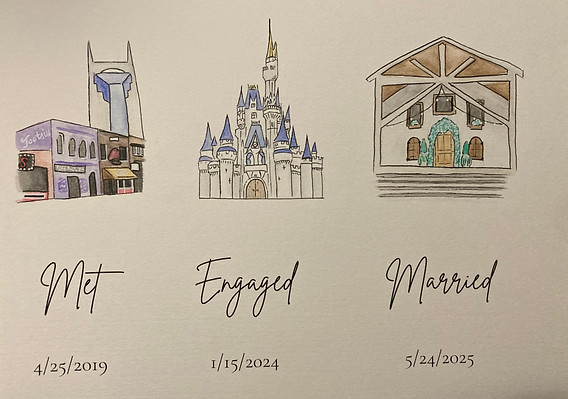 Tootsie
Met Engaged Married
4/25/2019 1/15/2024 5/24/2025